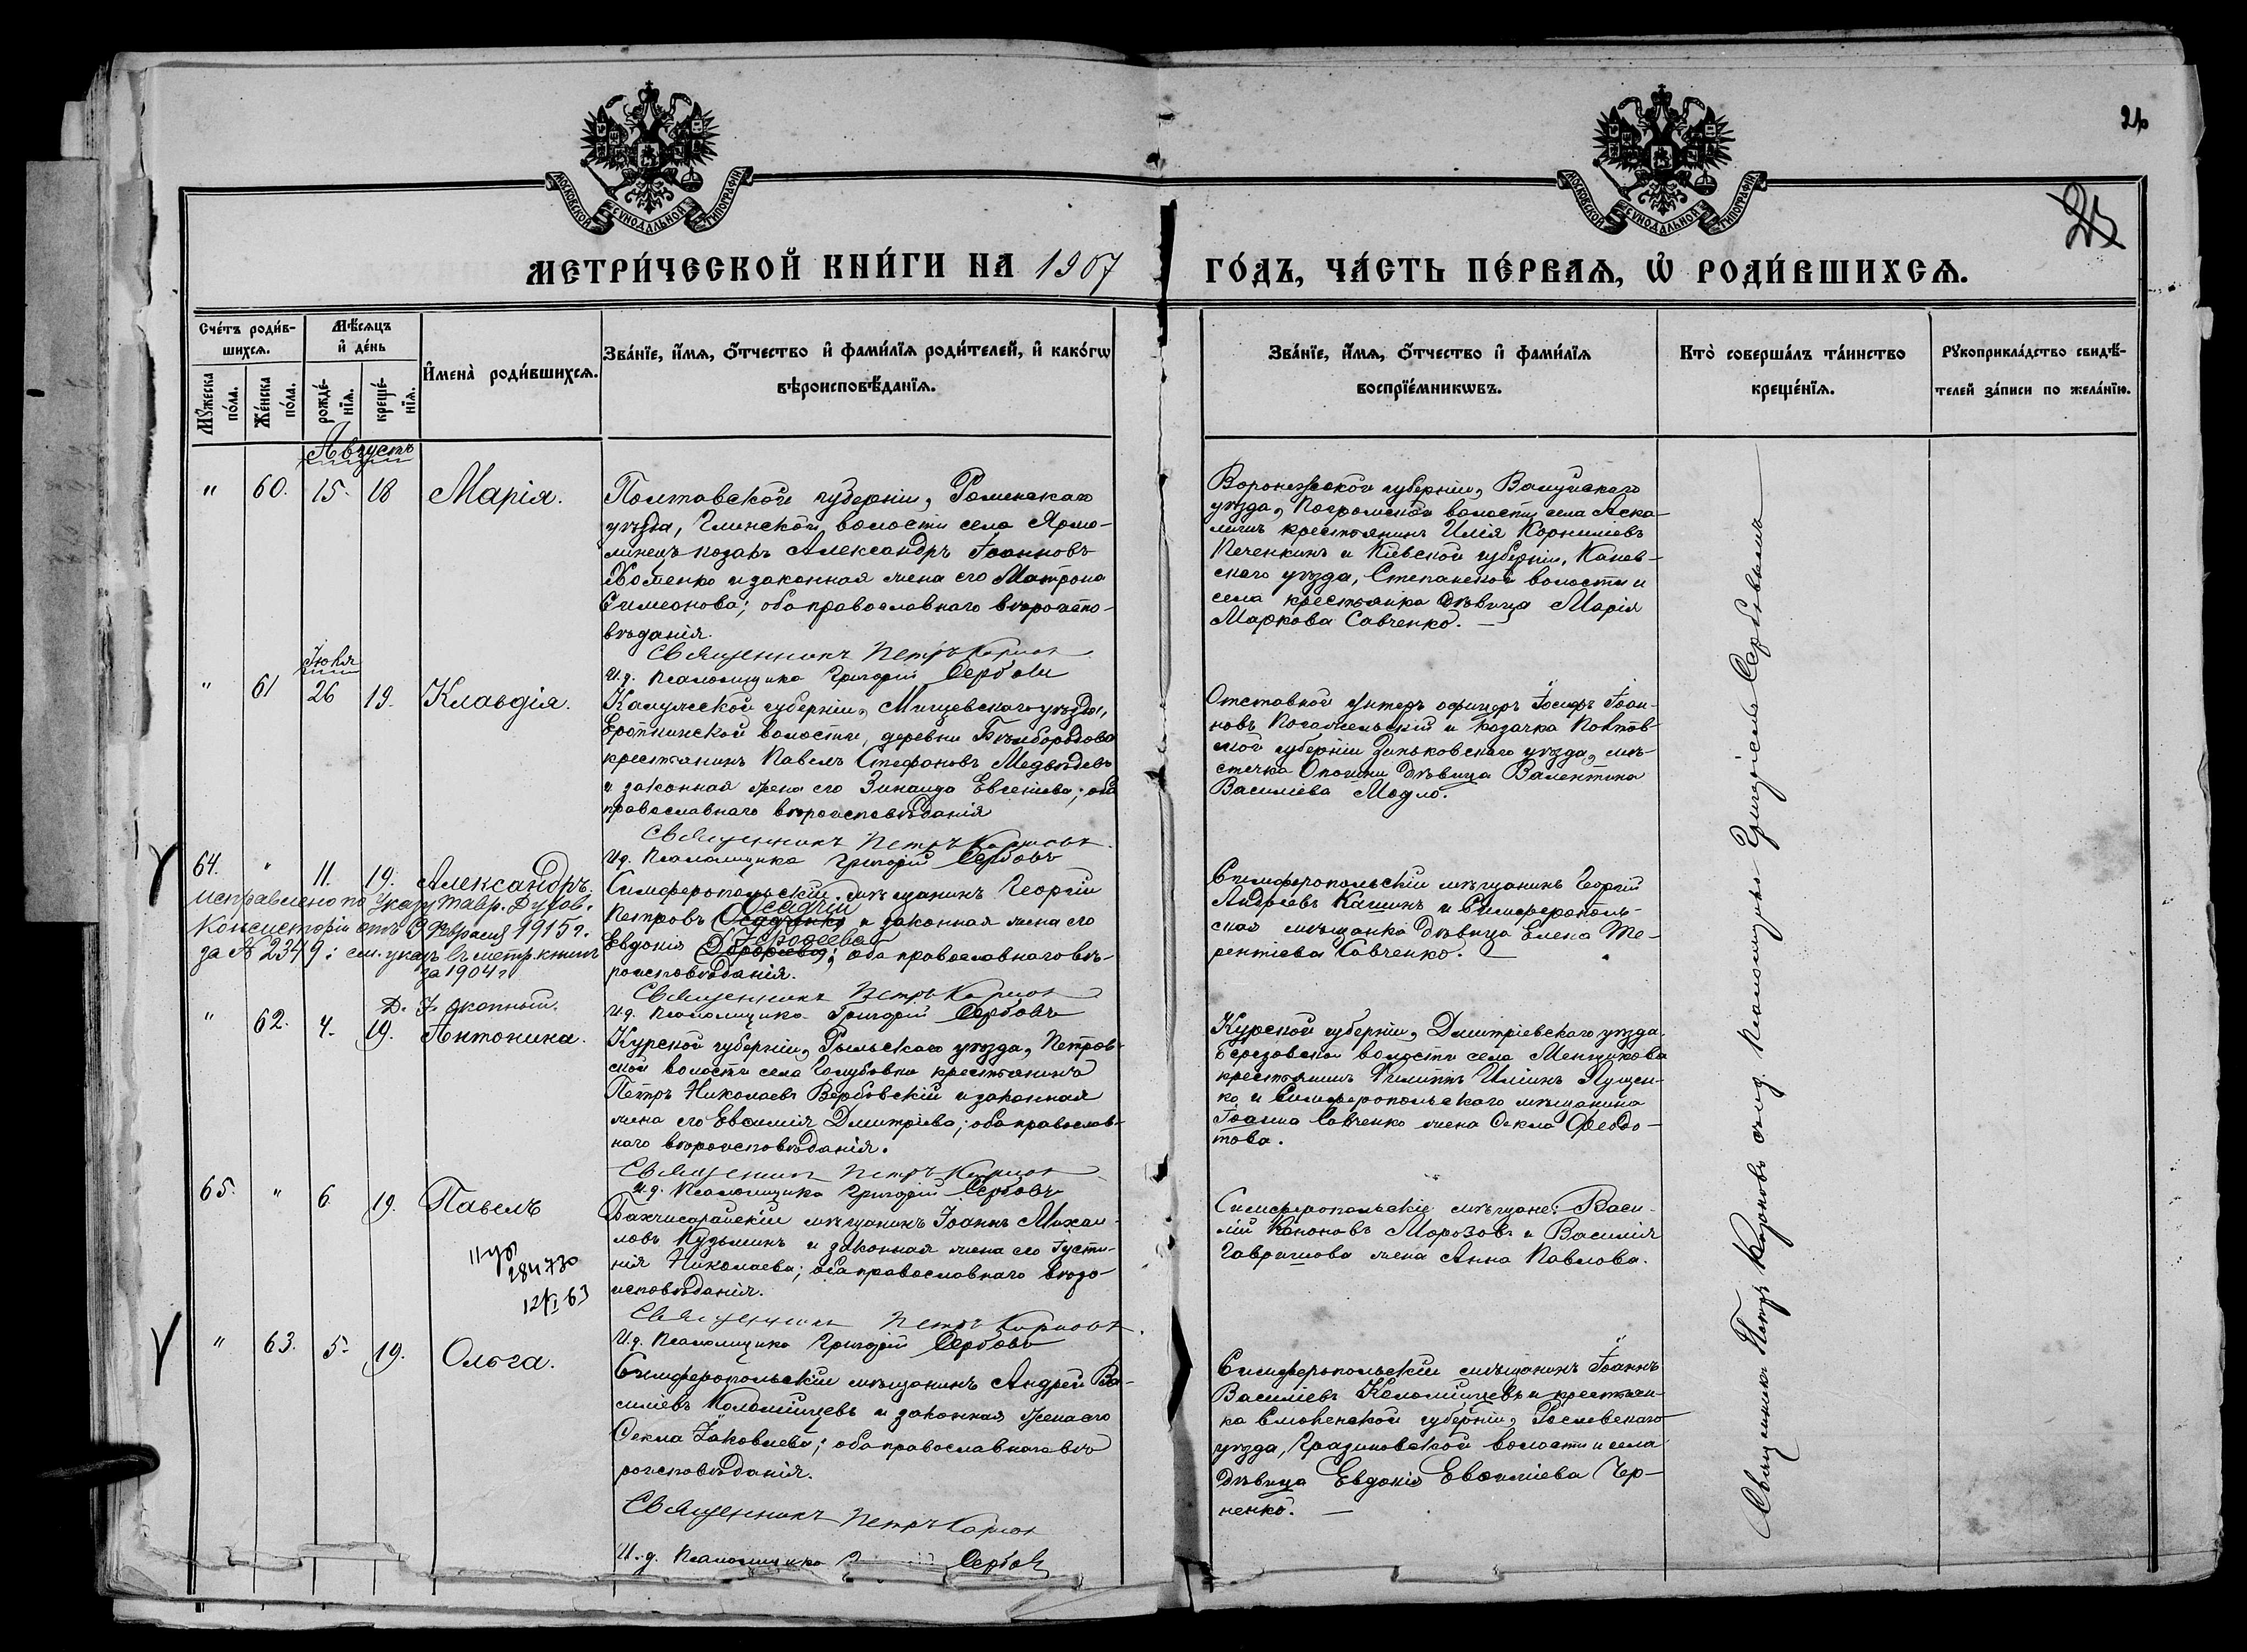 26
25
МОСКОВСКОЙ СѴНОДАЛЬНОЙ ТИПОГРАФІИ
МОСКОВСКОЙ СѴНОДАЛЬНОЙ ТИПОГРАФІИ
МЕТРИ́ЧЕСКОЙ КНИ́ГИ НА 1907
ГО́ДЪ, ЧА́СТЬ ПЕ́РВАѦ, Ѡ҆ РОДИ́ВШИХСѦ.
Сче́тъ роди́в-
шихсѧ.
Мꙋ́жеска
по́ла.
Же́нска
по́ла.
Мѣ́сѧцъ
и҆ де́нь
рожде́-
нїѧ.
креще́-
нїѧ.
И҆мена̀ роди́вшихсѧ.
Зва́нїе, и҆́мѧ, ѻ҆́тчество и҆ фами́лїѧ роди́телей, и҆ како́гѡ
вѣроисповѣ́данїѧ.
Зва́нїе, и҆́мѧ, ѻ҆́тчество и҆ фами́лїѧ
воспрїе́мникѡвъ.
Кто̀ соверша́лъ та́инство
креще́нїѧ.
Рꙋкоприкла́дство свидѣ́-
телей за́писи по жела́нїю.
Августъ
" 60. 15. 18 Марія.
Полтавской губерніи, Роменскаго
уѣзда, Глинской волости села Ярмо-
линецъ козакъ Александръ Іоанновъ
Хоменко и законная жена его Матрона
Симеонова; оба православнаго вѣроиспо-
вѣданія.
Священникъ Петръ Карпов
И.д. Псаломщика Григорій Сербовъ
Воронежской губерніи, Валуйскаго
уѣзда, Погромской волости села Аска-
крестьянинъ Илія Корниліевъ
Печенкинъ и Кіевской губерніи, Канев-
скаго уѣзда, Степанской волости и
села крестьянка дѣвица Марія
Маркова Савченко.
Іюля
" 61 26 19. Клавдія.
Калужской губерніи, Мещевскаго уѣзда,
волости, деревни
крестьянинъ Павелъ Стефановъ Медвѣдевъ
и законная жена его Зинаида Евгеніева; оба
православнаго вѣроисповѣданія
Священникъ Петръ Карповъ
И.д. Псаломщика Григорій Сербовъ
Отставной унтеръ офицеръ Іосифъ Іоан-
новъ и казачка Полтав-
ской губерніи Зиньковскаго уѣзда, мѣ-
стечка Опошни дѣвица Валентина
Василіева Модло.
64. " 11. 19. Александръ.
Исправлено по указу Тавр. Духов.
Консисторіи отъ 9 февраля 1915 г.
за № 2349: см. указъ въ метр. книгѣ
за 1904 г
Симферопольскій мѣщанинъ Георгій
Осадчій
Петровъ Осадченко и законная жена его
Евдокія Дорофеева; оба православнаго вѣ-
роисповѣданія.
Священникъ Петръ Карпов
И.д. Псаломщика Григорій Сербовъ
Симферопольскій мѣщанинъ Георгій
Андреевъ Кашинъ и Симферополь-
ская мѣщанка дѣвица Елена Те-
рентіева Савченко.
" 62. 4. 19. Антонина.
Курской губерніи, Рыльскаго уѣзда, Петров-
ской волости села Голубовки крестьянинъ
Петръ Николаевъ Вербовскій и законная
жена его Евфимія Димитріева; оба православ-
наго вѣроисповѣданія.
Священник Петръ Карпов
И.д. Псаломщика Григорій Сербовъ
Курской губерніи, Дмитріевскаго уѣзда,
Березовской волости села Меншикова
крестьянинъ Филиппъ Иліинъ Лущен-
ко и Симферопольскаго мѣщанина
Іоанна Савченко жена Ѳекла Ѳеодо-
това.
65. " 6. 19. Павелъ
284730
12/XI 63
Бахчисарайскій мѣщанинъ Іоаннъ Михаи-
ловъ Кузьминъ и законная жена его Іусти-
нія Николаева; оба православнаго вѣро-
исповѣданія.
Священникъ Петръ Карповъ.
И.д. Псаломщика Григорій Сербовъ
Симферопольскіе мѣщане: Васи-
лій Кононовъ Морозовъ и Василія
Гаврилова жена Анна Павлова.
" 63. 5. 19. Ольга.
Симферопольскій мѣщанинъ Андрей Ва-
силіевъ Коломійцевъ и законная жена его
Ѳекла Іаковлева; оба православнаго вѣ-
роисповѣданія.
Священникъ Петръ Карпов
И.д. Псаломщика Сербовъ
Симферопольскій мѣщанинъ Іоаннъ
Василіевъ Коломійцевъ и крестьян-
ка Смоленской губерніи, Рославскаго
уѣзда, волости и села
дѣвица Евдокія Евфиміева Чер-
ненко.
Священникъ Петръ Карповъ съ и.д. псаломщика Григоріемъ Сербовымъ